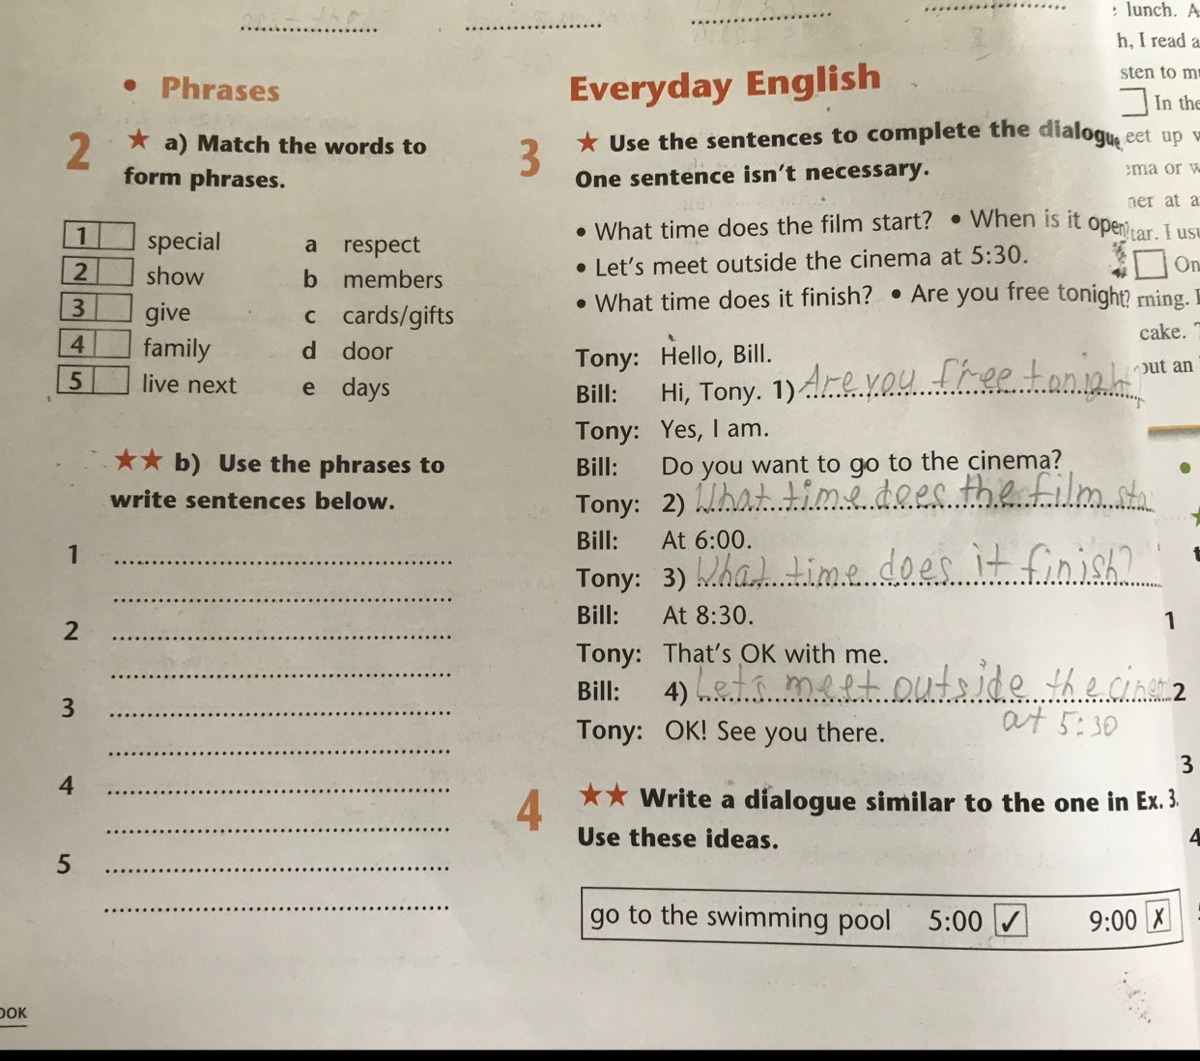 • Phrases
2 ★ a) Match the words to
form phrases.
1 special a respect
2 show b members
3 give c cards/gifts
4 family d door
5 live next e days
★★ b) Use the phrases to
write sentences below.
1
2
3
4
5
OOK
Everyday English
3 ★ Use the sentences to complete the dialogue
One sentence isn't necessary.
• What time does the film start? • When is it open
• Let's meet outside the cinema at 5:30.
• What time does it finish? • Are you free tonight?
Tony: Hello, Bill.
Bill: Hi, Tony. 1) Are you free tonigh
Tony: Yes, I am.
Bill: Do you want to go to the cinema?
Tony: 2) What time does the film sta
Bill: At 6:00.
Tony: 3) What time does it finish?
Bill: At 8:30.
Tony: That's OK with me.
Bill: 4) Let's meet outside the cinem
at 5:30
Tony: OK! See you there.
4 ★★ Write a dialogue similar to the one in Ex. 3.
Use these ideas.
go to the swimming pool 5:00 ✓ 9:00 ✗
lunch. A
h, I read a
sten to mu
In the
eet up
ema or w
ner at a
tar. I usu
On
rning. I
cake.
out an
1
2
3
4